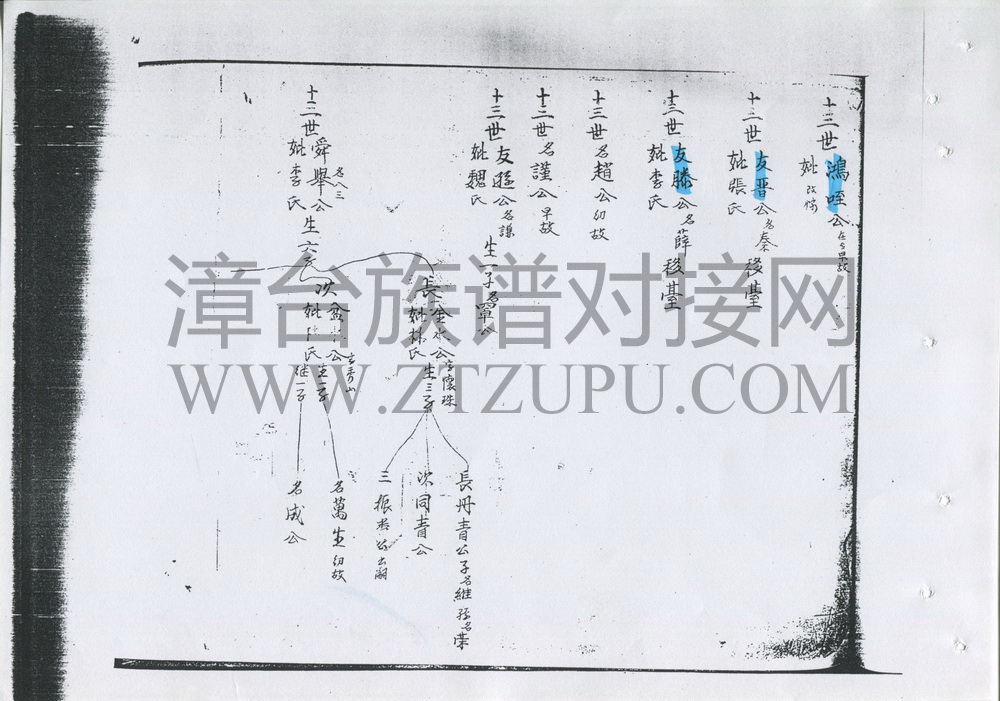 十三世鴻哖公在台早故
妣改嫁
十三世友晋公名秦 移臺
妣張氏
十三世友滕公名薛 移臺
妣李氏
十三世名趙公幼故
十三世名謹公早故
十三世友遜公名謙 生一子名罩公
妣魏氏
十三世舜舉公生六子
名八三
妣李氏
長金水公字懷珠
妣林氏 生三子
次盆 公
妣 氏 生一子
継一子
長丹青公子名維孫名荣
次同青公
三振 公出嗣
名萬生幼故
名成公
漳台族谱对接网
WWW.ZTZUPU.COM